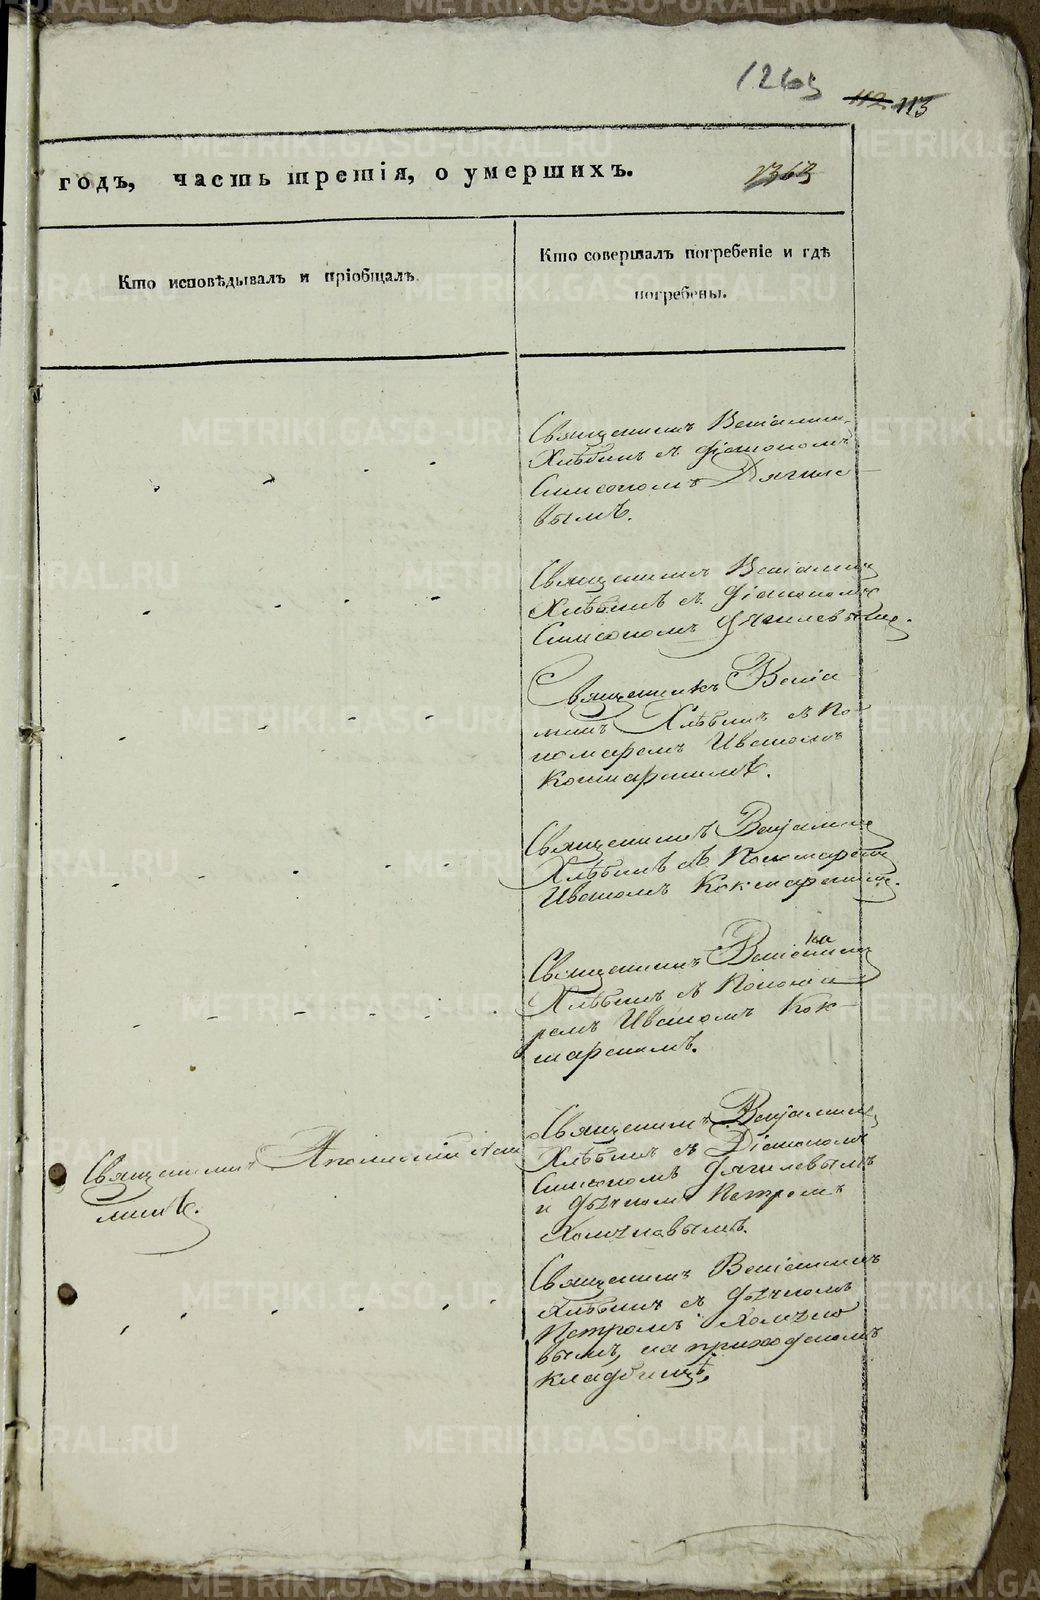 1263
112 113
годъ, часть третія, о умершихъ.
1363
Кто исповѣдывалъ и пріобщалъ.
Кто совершалъ погребеніе и гдѣ
погребены.
Священникъ Веніамин
Хлѣбинъ съ Діакономъ
Симсономъ Дягиле
вымъ.
Священникъ Веніаминъ
Хлѣбинъ съ Діакономъ
Симсономъ Дягилевымъ.
Священникъ Веніа
минъ Хлѣбинъ съ По-
номаремъ Иваномъ
Кокшарскимъ.
Священникъ Веніаминъ
Хлѣбинъ съ Пономаремъ
Иваномъ Кокшарскимъ.
Священникъ Веніаминъ
Хлѣбинъ съ Понома
ремъ Иваномъ Кок-
шарскимъ.
Священникъ Веніаминъ
Хлѣбинъ съ Діакономъ
Симсономъ Дягилевымъ
и Дьячкомъ Петромъ
Священникъ
Священникъ Веніаминъ
Хлѣбинъ съ Дьячкомъ
Петромъ
вымъ, на приходскомъ
кладбищѣ.
METRIKI.GASO-URAL.RU